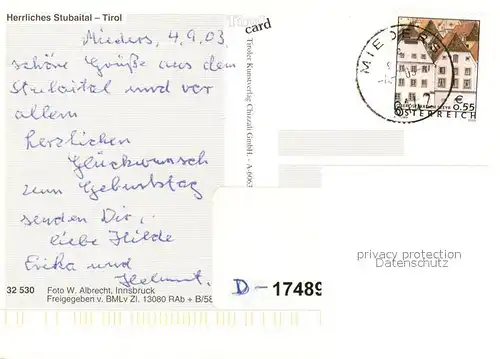 Herrliches Stubaital – Tirol
Mieders, 4.9.03,
schöne Grüße aus dem
Stubaital und vor
allem
herzlichen
Glückwunsch
zum Geburtstag
senden Dir,
liebe Hilde
Erika und
Helmut.
32 530 Foto W. Albrecht, Innsbruck
Freigegeben v. BMLv Zl. 13080 RAb + B/58
card
Tiroler Kunstverlag Chizzali GmbH. – A-6063
MIEDERS
€
0.55
ÖSTERREICH
D-17489
privacy protection
Datenschutz